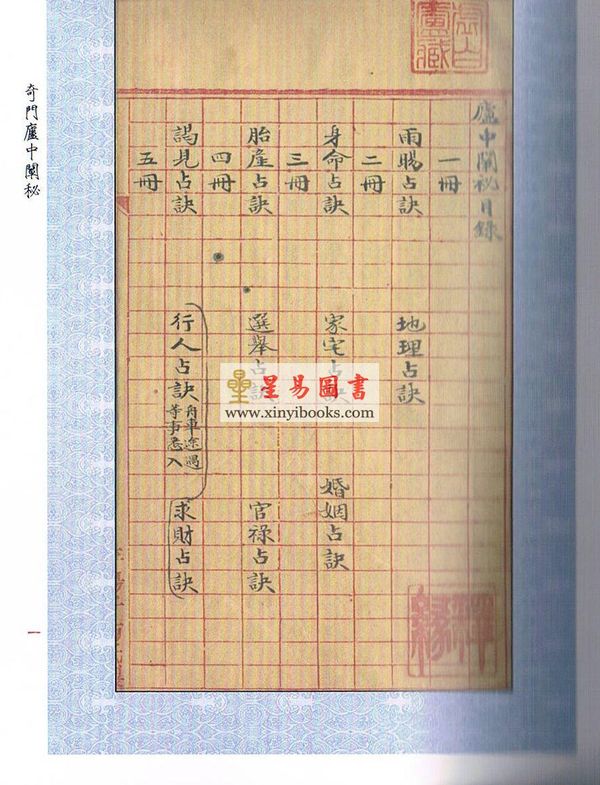 奇門廬中闡秘
廬中闡秘目錄
一冊
雨暘占訣 地理占訣
二冊
身命占訣 家宅占訣 婚姻占訣
三冊
胎產占訣 選舉占訣 官祿占訣
四冊
謁見占訣 行人占訣 舟車途遇等事悉入 求財占訣
五冊
星易圖書
www.xinyibooks.com
一